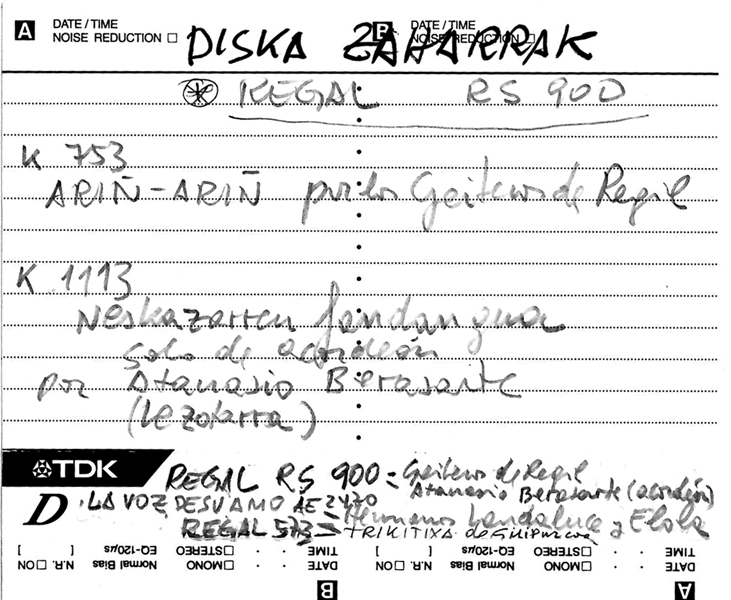 A DATE / TIME NOISE REDUCTION □ B DATE / TIME NOISE REDUCTION □
DISKA ZAHARRAK
REGAL RS 900
K 753
ARIÑ-ARIÑ por los Geiteros de Regil
K 1113
Neskazarren fandangua
solo de acordeón
por Atanasio Berasarte
(Lezotarra)
TDK
REGAL RS 900 = Geiteros de Regil
Atanasio Berasarte (acordeón)
D
. LA VOZ DE SU AMO AE 2420
REGAL 573 = Hermanos Landaluce y Elola
TRIKITIXA de Guipuzcoa
A DATE TIME . . □ MONO □ STEREO Normal Bias EQ-120µs N.R. □ ON [ ]
B DATE TIME . . □ MONO □ STEREO Normal Bias EQ-120µs N.R. □ ON [ ]